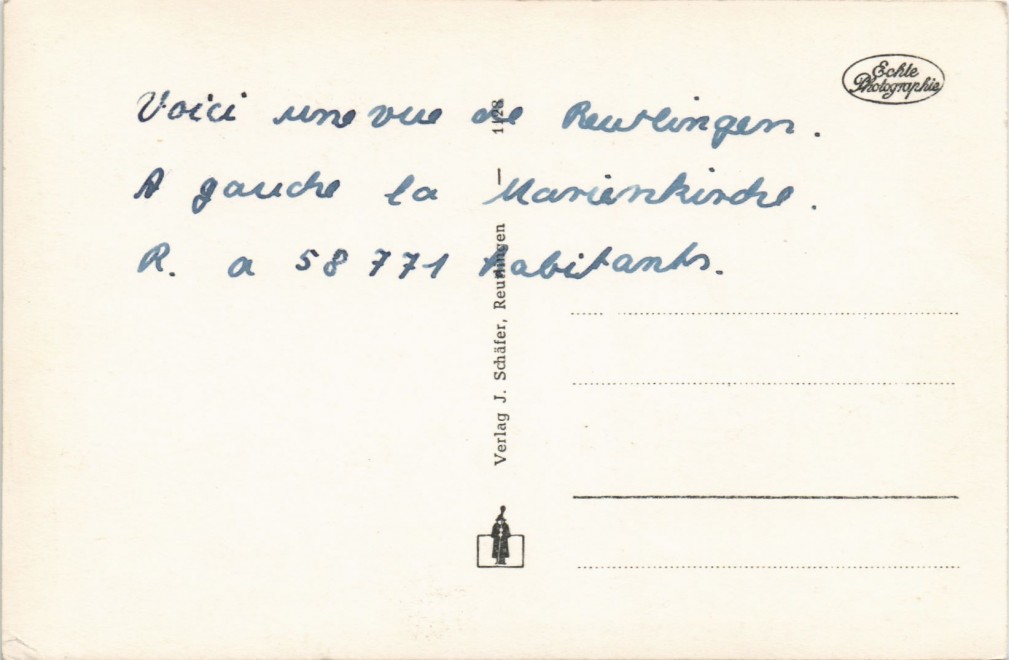 Echte
Photographie
Voici une vue de Reutlingen.
A gauche la Marienkirche.
R. a 58 771 habitants.
Verlag J. Schäfer, Reutlingen — 1128